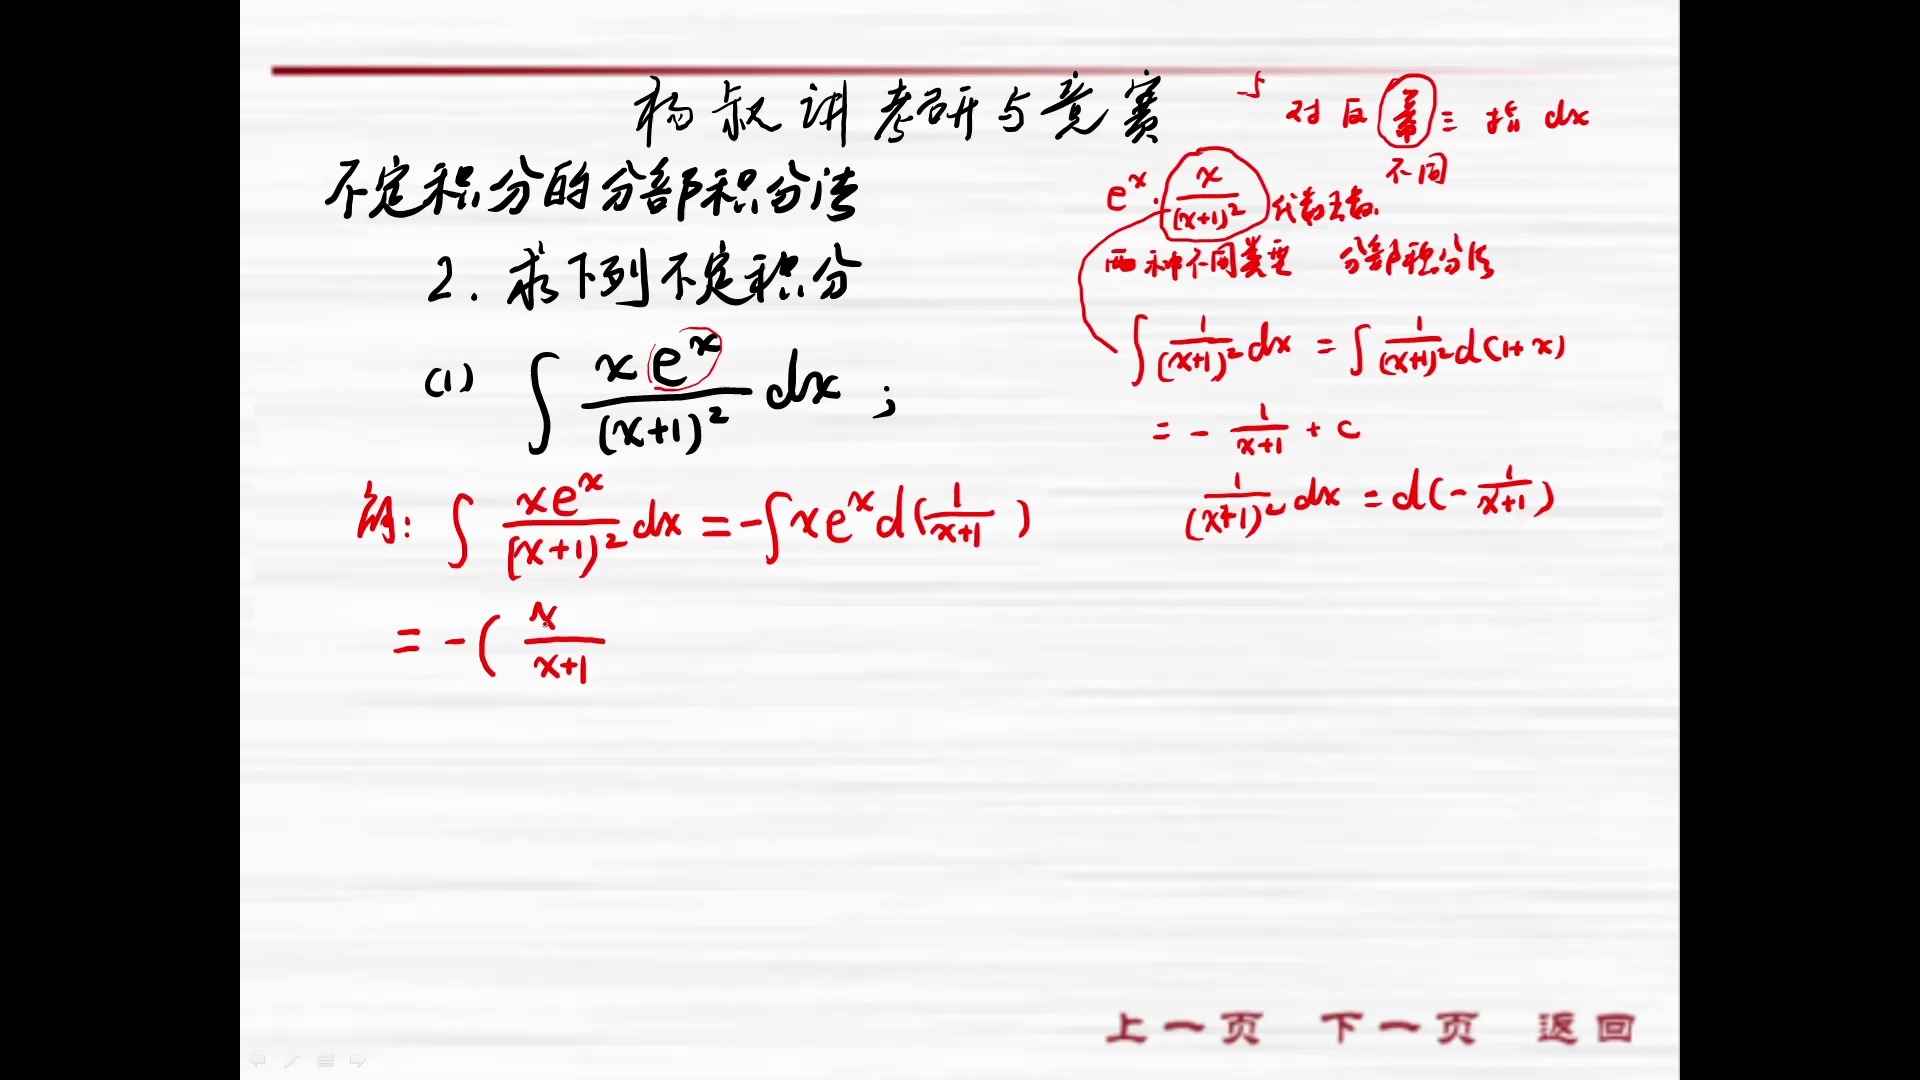 杨叔讲考研与竞赛
不定积分的分部积分法
2. 求下列不定积分
(1) ∫ xe^x/(x+1)^2 dx ;
解: ∫ xe^x/(x+1)^2 dx = -∫ xe^x d(1/(x+1))
= -( x/(x+1)
与
对 反 幂 三 指 dx
不同
e^x · x/(x+1)^2 代数函数.
两种不同类型 分部积分法
∫ 1/(x+1)^2 dx = ∫ 1/(x+1)^2 d(1+x)
= - 1/(x+1) + c
1/(x+1)^2 dx = d(- 1/(x+1))
上一页 下一页 返回